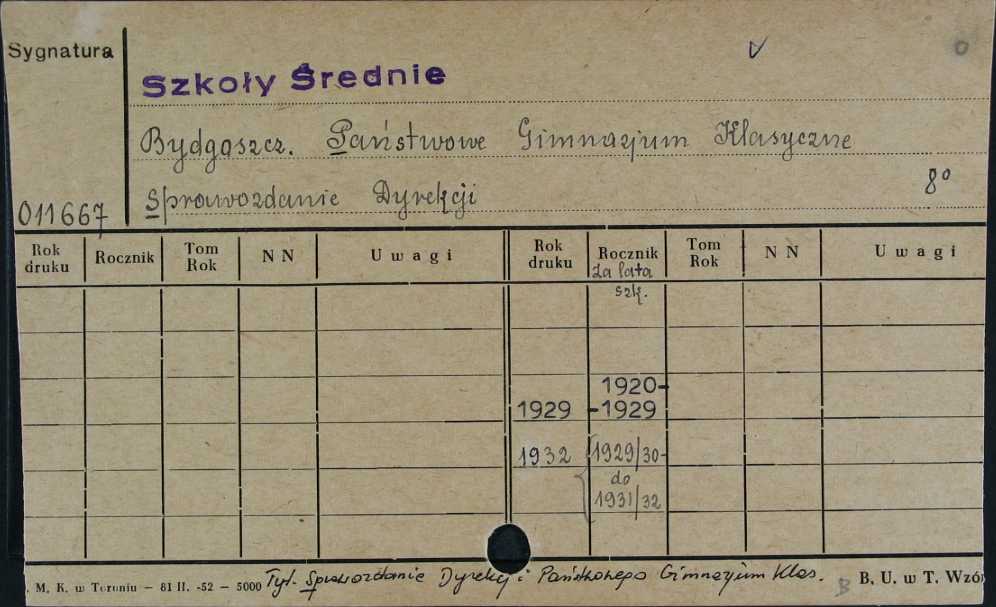 Sygnatura
Szkoły Średnie
Bydgoszcz. Państwowe Gimnazjum Klasyczne
Sprawozdanie Dyrekcji 8°
011667
Rok druku Rocznik Tom Rok N N Uwagi Rok druku Rocznik Tom Rok N N Uwagi
za lata
szk.
1920-
1929 -1929
1932 1929/30-
do
1931/32
. M. K. w Toruniu – 81 II. -52 – 5000 Tyt. Sprawozdanie Dyrekcji Państwowego Gimnazjum Klas. B B. U. w T. Wzó